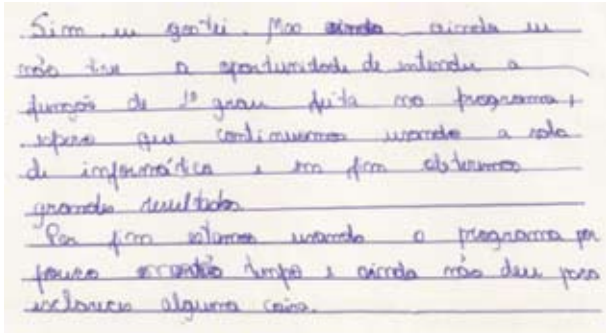 Sim eu gostei. Mas ainda ainda eu
não tive a oportunidade de entender a
função de 1º grau feita no programa,
espero que continuemos usando a sala
de informática e em fim obtermos
grandes resultados
Por fim estamos usando o programa por
pouco tempo e ainda não deu para
esclarecer alguma coisa.